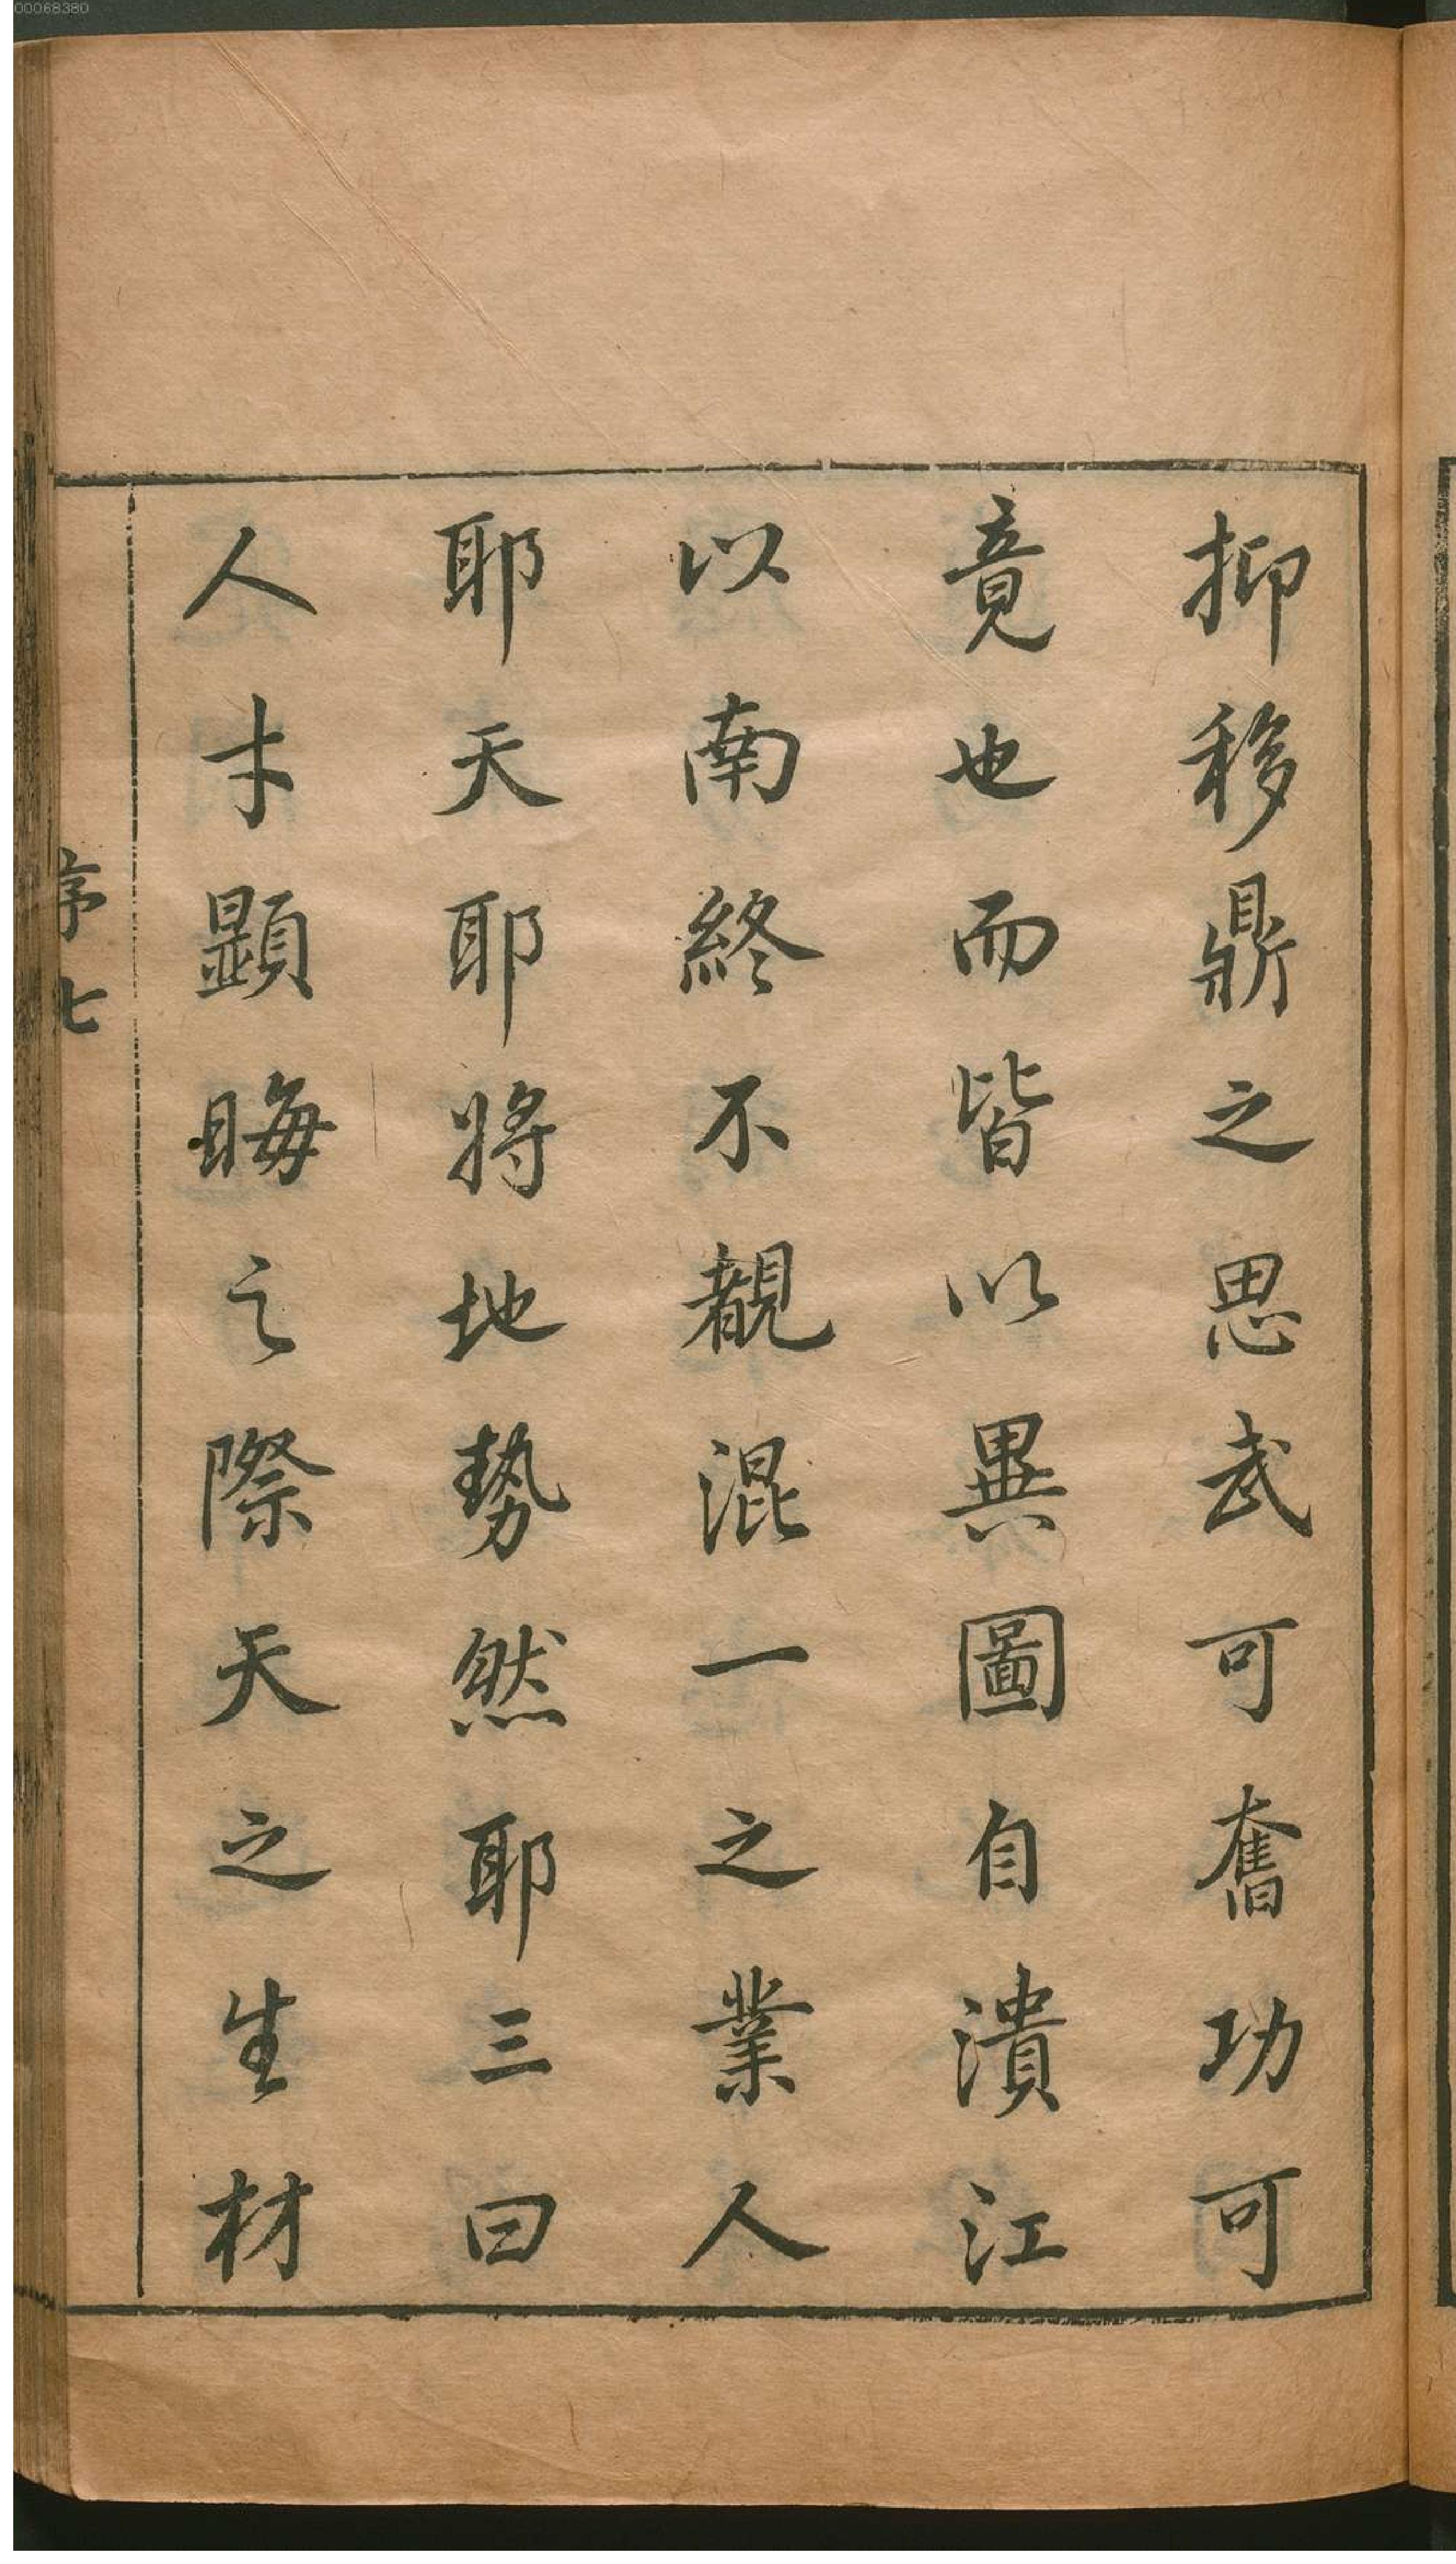 抑移鼎之思武可奮功可
竟也而皆以異圖自潰江
以南終不覩混一之業人
耶天耶將地勢然耶三曰
人才顯晦之際天之生材
序七
00068380